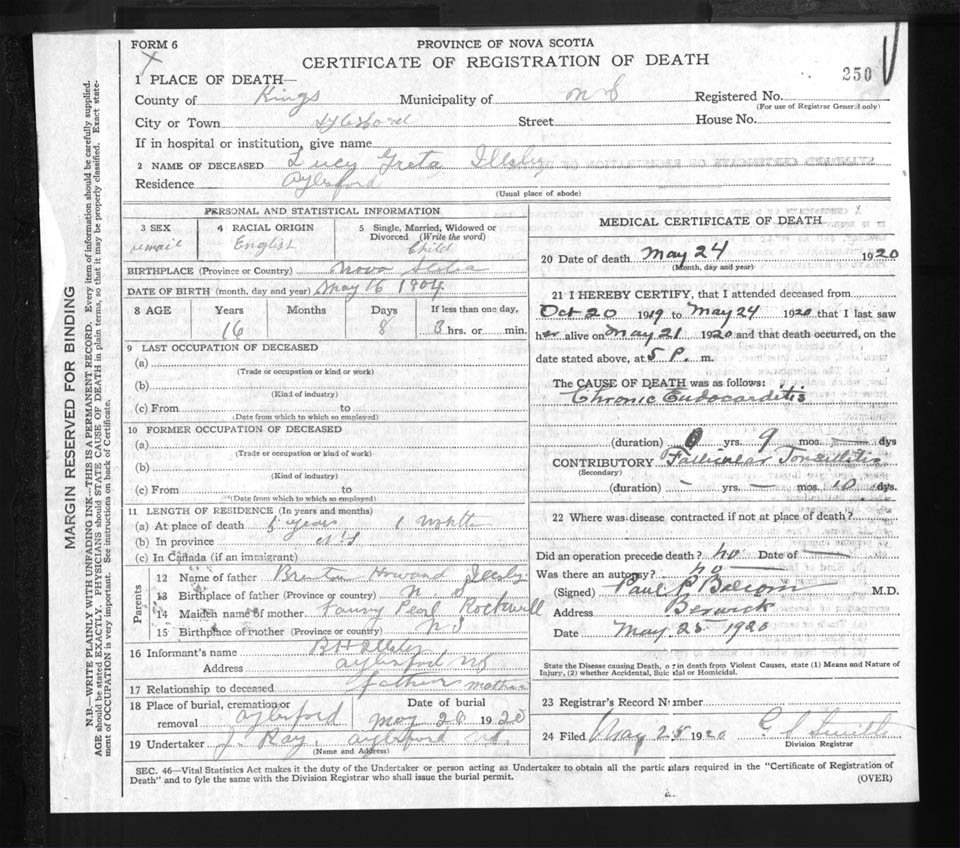 FORM 6
PROVINCE OF NOVA SCOTIA
CERTIFICATE OF REGISTRATION OF DEATH
250
1 PLACE OF DEATH—
County of Kings Municipality of N S Registered No.
(For use of Registrar General only)
City or Town Aylesford Street House No.
If in hospital or institution, give name
2 NAME OF DECEASED Lucy Greta Illsley
Residence Aylesford
(Usual place of abode)
PERSONAL AND STATISTICAL INFORMATION
3 SEX 4 RACIAL ORIGIN 5 Single, Married, Widowed or
Divorced (Write the word)
Female English Child
BIRTHPLACE (Province or Country) Nova Scotia
DATE OF BIRTH (month, day and year) May 16 1904
8 AGE Years Months Days If less than one day,
16 8 hrs. or min.
9 LAST OCCUPATION OF DECEASED
(a)
(Trade or occupation or kind or work)
(b)
(Kind of industry)
(c) From to
(Date from which to which so employed)
10 FORMER OCCUPATION OF DECEASED
(a)
(Trade or occupation or kind of work)
(b)
(Kind of industry)
(c) From to
(Date from which to which so employed)
11 LENGTH OF RESIDENCE (In years and months)
(a) At place of death years 1
(b) In province N S
(c) In Canada (if an immigrant)
Parents
12 Name of father Howard Illsley
13 Birthplace of father (Province or country) N. S
14 Maiden name of mother Pearl Rockwell
15 Birthplace of mother (Province or country) N S
16 Informant's name B H Illsley
Address Aylesford NS
17 Relationship to deceased father
18 Place of burial, cremation or Date of burial
removal Aylesford May 28 1920
19 Undertaker J. Ray, Aylesford N.S.
(Name and Address)
MEDICAL CERTIFICATE OF DEATH
20 Date of death May 24 1920
(Month, day and year)
21 I HEREBY CERTIFY, that I attended deceased from
Oct 20 1919 to May 24 1920 that I last saw
her alive on May 21 1920 and that death occurred, on the
date stated above, at 5 P. m.
The CAUSE OF DEATH was as follows:
Chronic Endocarditis
(duration) 0 yrs. 9 mos. — dys
CONTRIBUTORY Follicular Tonsillitis
(Secondary)
(duration) — yrs. — mos. 10 dys.
22 Where was disease contracted if not at place of death?
Did an operation precede death? no Date of —
Was there an autopsy? no
(Signed) Paul M.D.
Address Berwick
Date May 25 1920
State the Disease causing Death, or in death from Violent Causes, state (1) Means and Nature of
Injury, (2) whether Accidental, Suicidal or Homicidal.
23 Registrar's Record Number
24 Filed May 25 1920 Smith
Division Registrar
SEC. 46—Vital Statistics Act makes it the duty of the Undertaker or person acting as Undertaker to obtain all the particulars required in the "Certificate of Registration of
Death" and to fyle the same with the Division Registrar who shall issue the burial permit.
(OVER)
MARGIN RESERVED FOR BINDING
N.B.—WRITE PLAINLY WITH UNFADING INK—THIS IS A PERMANENT RECORD. Every item of information should be carefully supplied.
AGE should be stated EXACTLY. PHYSICIANS should STATE CAUSE OF DEATH in plain terms, so that it may be properly classified. Exact state-
ment of OCCUPATION is very important. See instructions on back of Certificate.